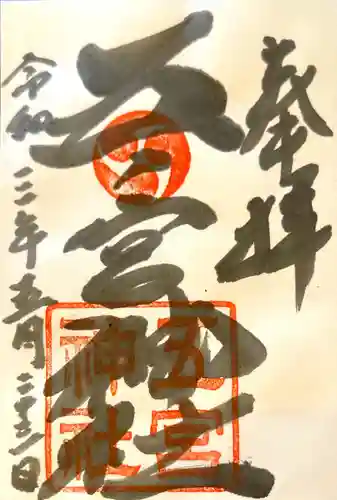 奉拝
五宮神社
令和三年五月二十三日
五宮
神社